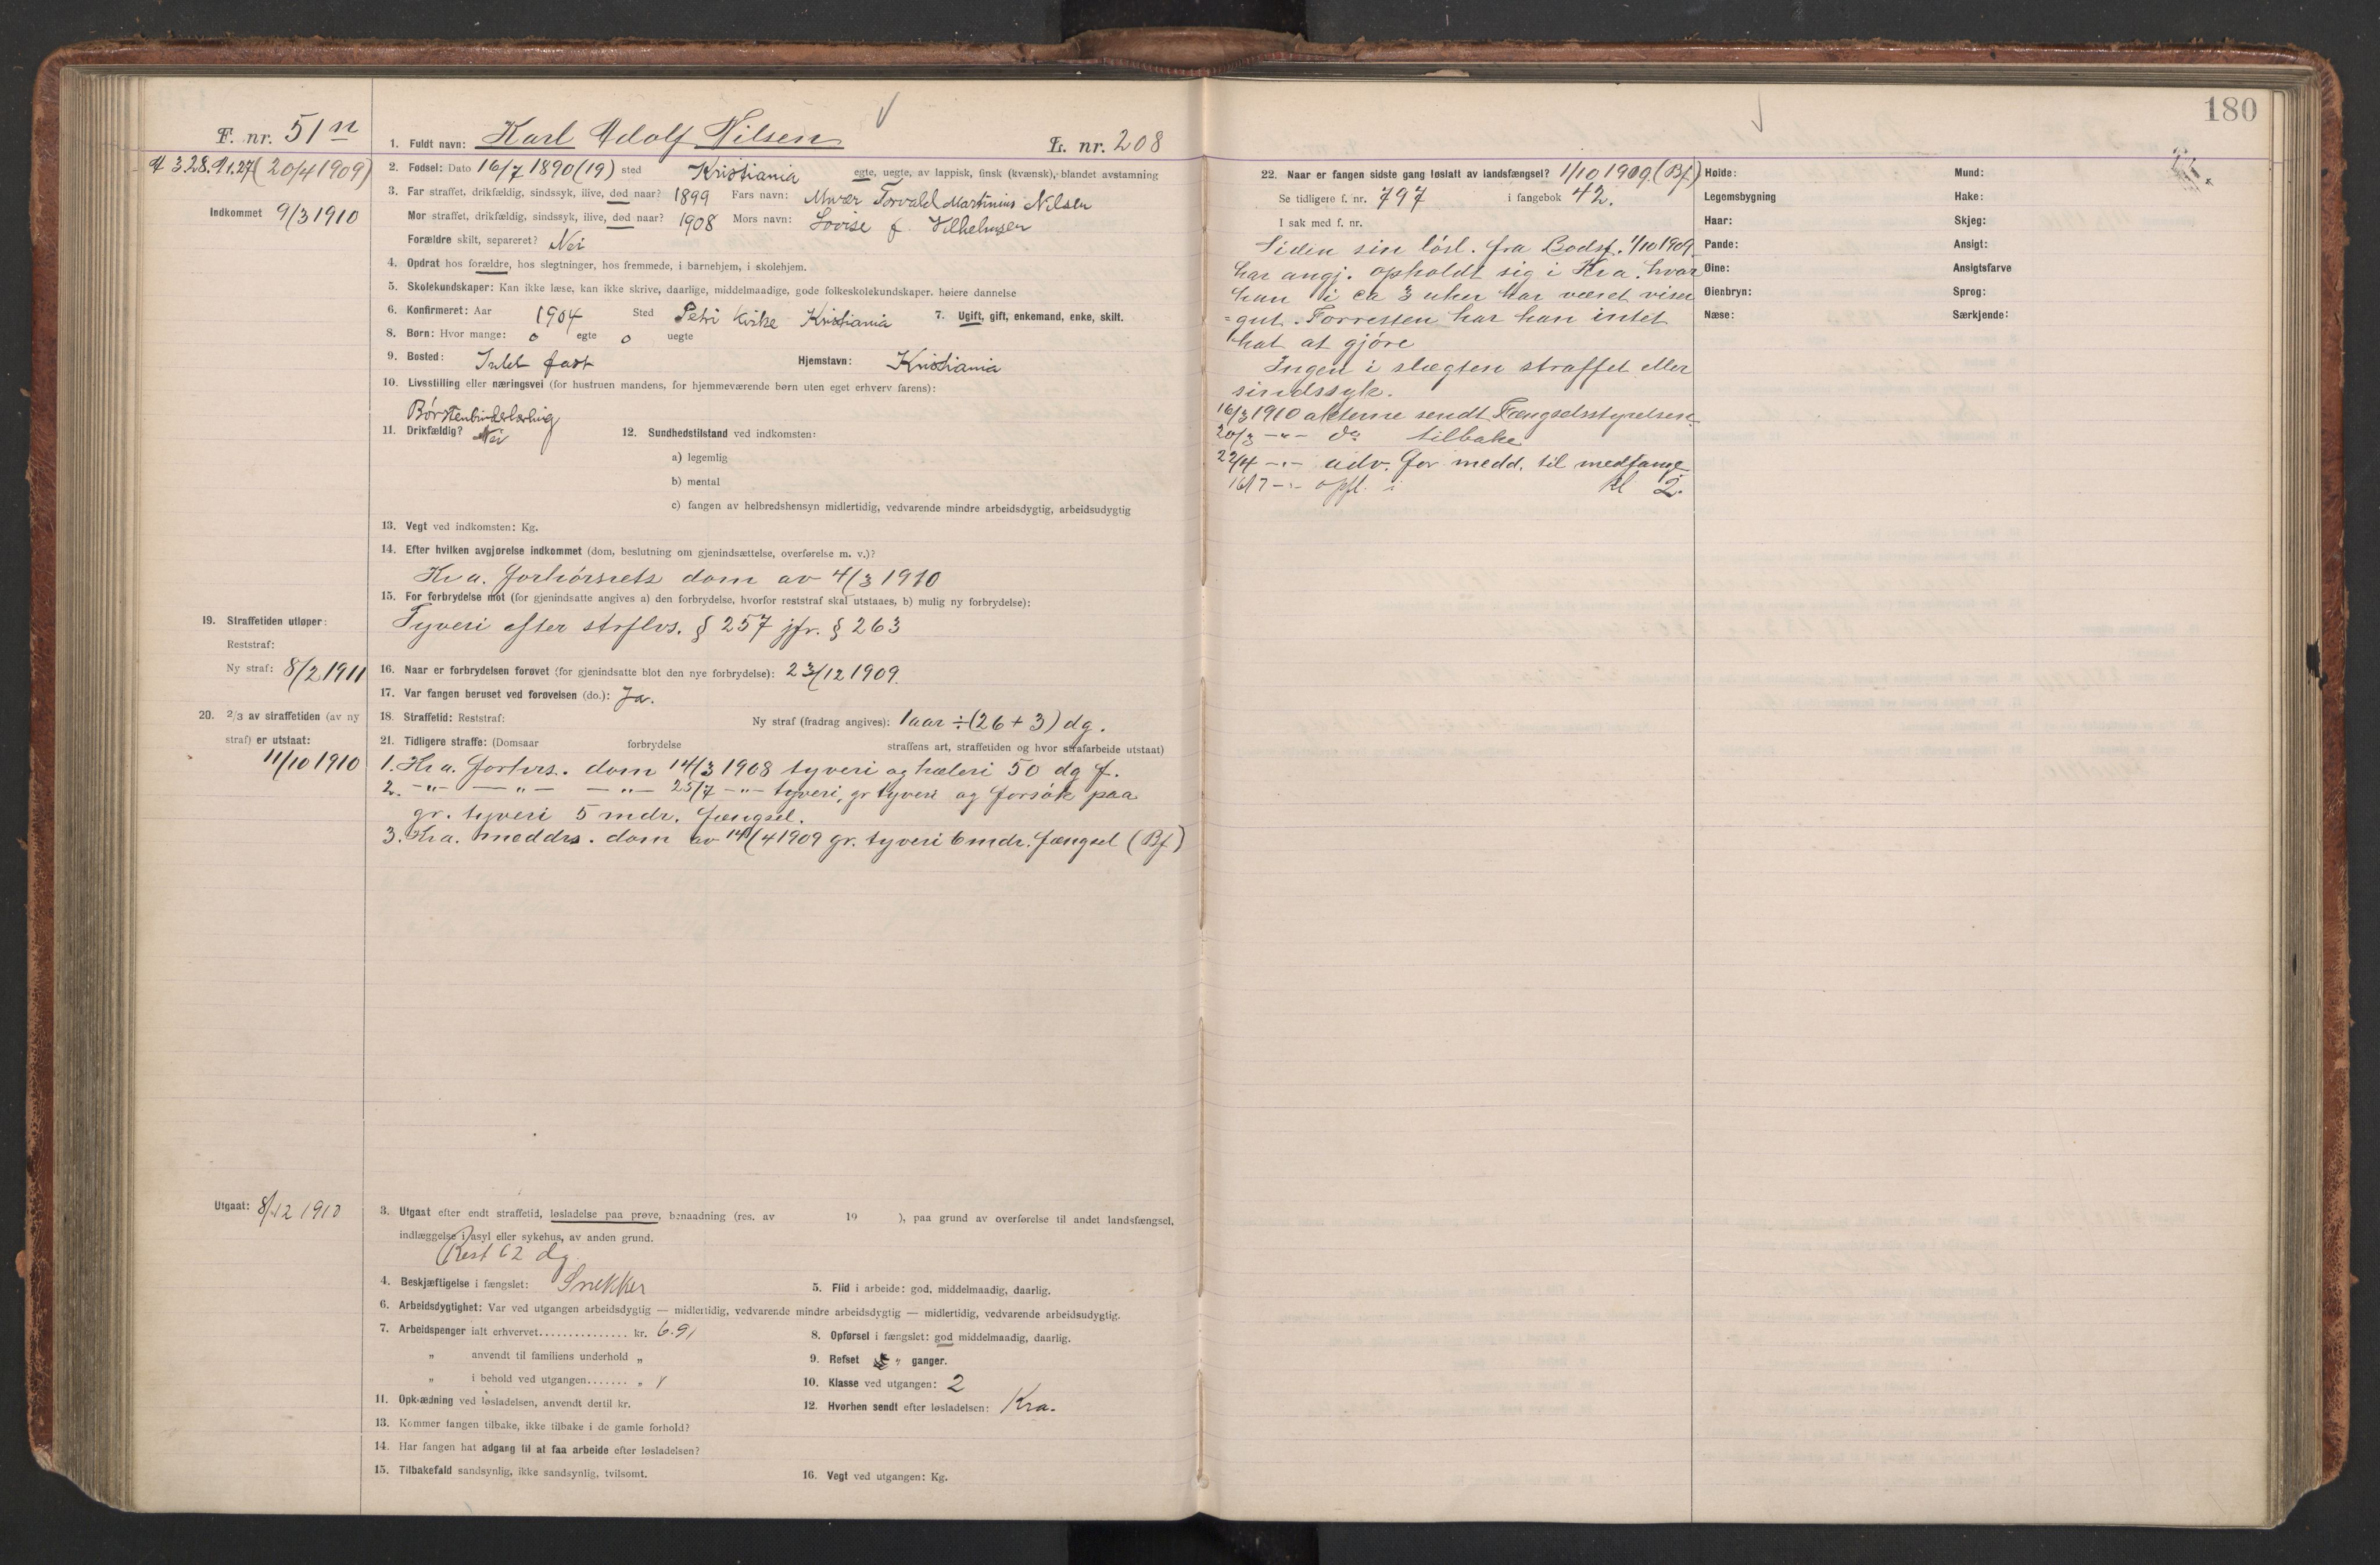 180
F. nr. 51 n
(20/4 1909)
Indkommet 9/3 1910
1. Fuldt navn: Karl Adolf Nilsen L. nr. 208
2. Fødsel: Dato 16/7 1890 (19) sted Kristiania egte, uegte, av lappisk, finsk (kvænsk), blandet avstamning
3. Far straffet, drikfældig, sindssyk, ilive, død naar? 1899 Fars navn: Murer Torvald Martinius Nilsen
Mor straffet, drikfældig, sindssyk, ilive, død naar? 1908 Mors navn: Lovise f. Vilhelmsen
Forældre skilt, separeret? Nei
4. Opdrat hos forældre, hos slegtninger, hos fremmede, i barnehjem, i skolehjem.
5. Skolekundskaper: Kan ikke læse, kan ikke skrive, daarlige, middelmaadige, gode folkeskolekundskaper. høiere dannelse
6. Konfirmeret: Aar 1904 Sted Petri kirke Kristiania 7. Ugift, gift, enkemand, enke, skilt.
8. Børn: Hvor mange: 0 egte 0 uegte
9. Bosted: Intet fast Hjemstavn: Kristiania
10. Livsstilling eller næringsvei (for hustruen mandens, for hjemmeværende børn uten eget erhverv farens):
Børstenbinderlærling
11. Drikfældig? Nei 12. Sundhedstilstand ved indkomsten:
a) legemlig
b) mental
c) fangen av helbredshensyn midlertidig, vedvarende mindre arbeidsdygtig, arbeidsudygtig
13. Vegt ved indkomsten: Kg.
14. Efter hvilken avgjørelse indkommet (dom, beslutning om gjenindsættelse, overførelse m. v.)?
Kra. forhørsrets dom av 4/3 1910
15. For forbrydelse mot (for gjenindsatte angives a) den forbrydelse, hvorfor reststraf skal utstaaes, b) mulig ny forbrydelse):
Tyveri efter strflvs. § 257 jfr. § 263
19. Straffetiden utløper:
Reststraf:
Ny straf: 8/2 1911
16. Naar er forbrydelsen forøvet (for gjenindsatte blot den nye forbrydelse): 23/12 1909.
17. Var fangen beruset ved forøvelsen (do.): Ja.
20. 2/3 av straffetiden (av ny
straf) er utstaat:
11/10 1910
18. Straffetid: Reststraf: Ny straf (fradrag angives): 1 aar ÷ (26 + 3) dg.
21. Tidligere straffe: (Domsaar forbrydelse straffens art, straffetiden og hvor strafarbeide utstaat)
1. Kra. forhrs. dom 14/3 1908 tyveri og hæleri 50 dg f.
2. -"- -"- -"- 25/7 -"- tyveri, gr tyveri og forsøk paa
gr. tyveri 5 mdr. fængsel.
3. Kra. meddrs. dom av 14/4 1909 gr. tyveri 6 mdr. fængsel (Bf)
Utgaat: 8/12 1910
3. Utgaat efter endt straffetid, løsladelse paa prøve, benaadning (res. av 19 ), paa grund av overførelse til andet landsfængsel,
indlæggelse i asyl eller sykehus, av anden grund.
Rest 62 dg
4. Beskjæftigelse i fængslet: Snekker 5. Flid i arbeide: god, middelmaadig, daarlig.
6. Arbeidsdygtighet: Var ved utgangen arbeidsdygtig — midlertidig, vedvarende mindre arbeidsdygtig — midlertidig, vedvarende arbeidsudygtig.
7. Arbeidspenger ialt erhvervet............... kr. 6.91 8. Opførsel i fængslet: god middelmaadig, daarlig.
" anvendt til familiens underhold " 9. Refset " ganger.
" i behold ved utgangen....... " 10. Klasse ved utgangen: 2
11. Opklædning ved løsladelsen, anvendt dertil kr. 12. Hvorhen sendt efter løsladelsen: Kra.
13. Kommer fangen tilbake, ikke tilbake i de gamle forhold?
14. Har fangen hat adgang til at faa arbeide efter løsladelsen?
15. Tilbakefald sandsynlig, ikke sandsynlig, tvilsomt. 16. Vegt ved utgangen: Kg.
22. Naar er fangen sidste gang løslatt av landsfængsel? 1/10 1909. (Bf.)
Se tidligere f. nr. 797 i fangebok 42.
I sak med f. nr.
Siden sin løsl. fra Bodsf. 1/10 1909
har angj. opholdt sig i Kra. hvor
han i ca 3 uker har været viser
=gut. Forresten har han intet
hat at gjøre
Ingen i slægten straffet eller
sindssyk.
16/3 1910 akterne sendt Fængselsstyrelsen
20/3 -"- do tilbake
22/4 -"- adv. for medd. til medfange
16/7 -"- opfl. i kl 2.
Høide: Mund:
Legemsbygning Hake:
Haar: Skjeg:
Pande: Ansigt:
Øine: Ansigtsfarve
Øienbryn: Sprog:
Næse: Særkjende: